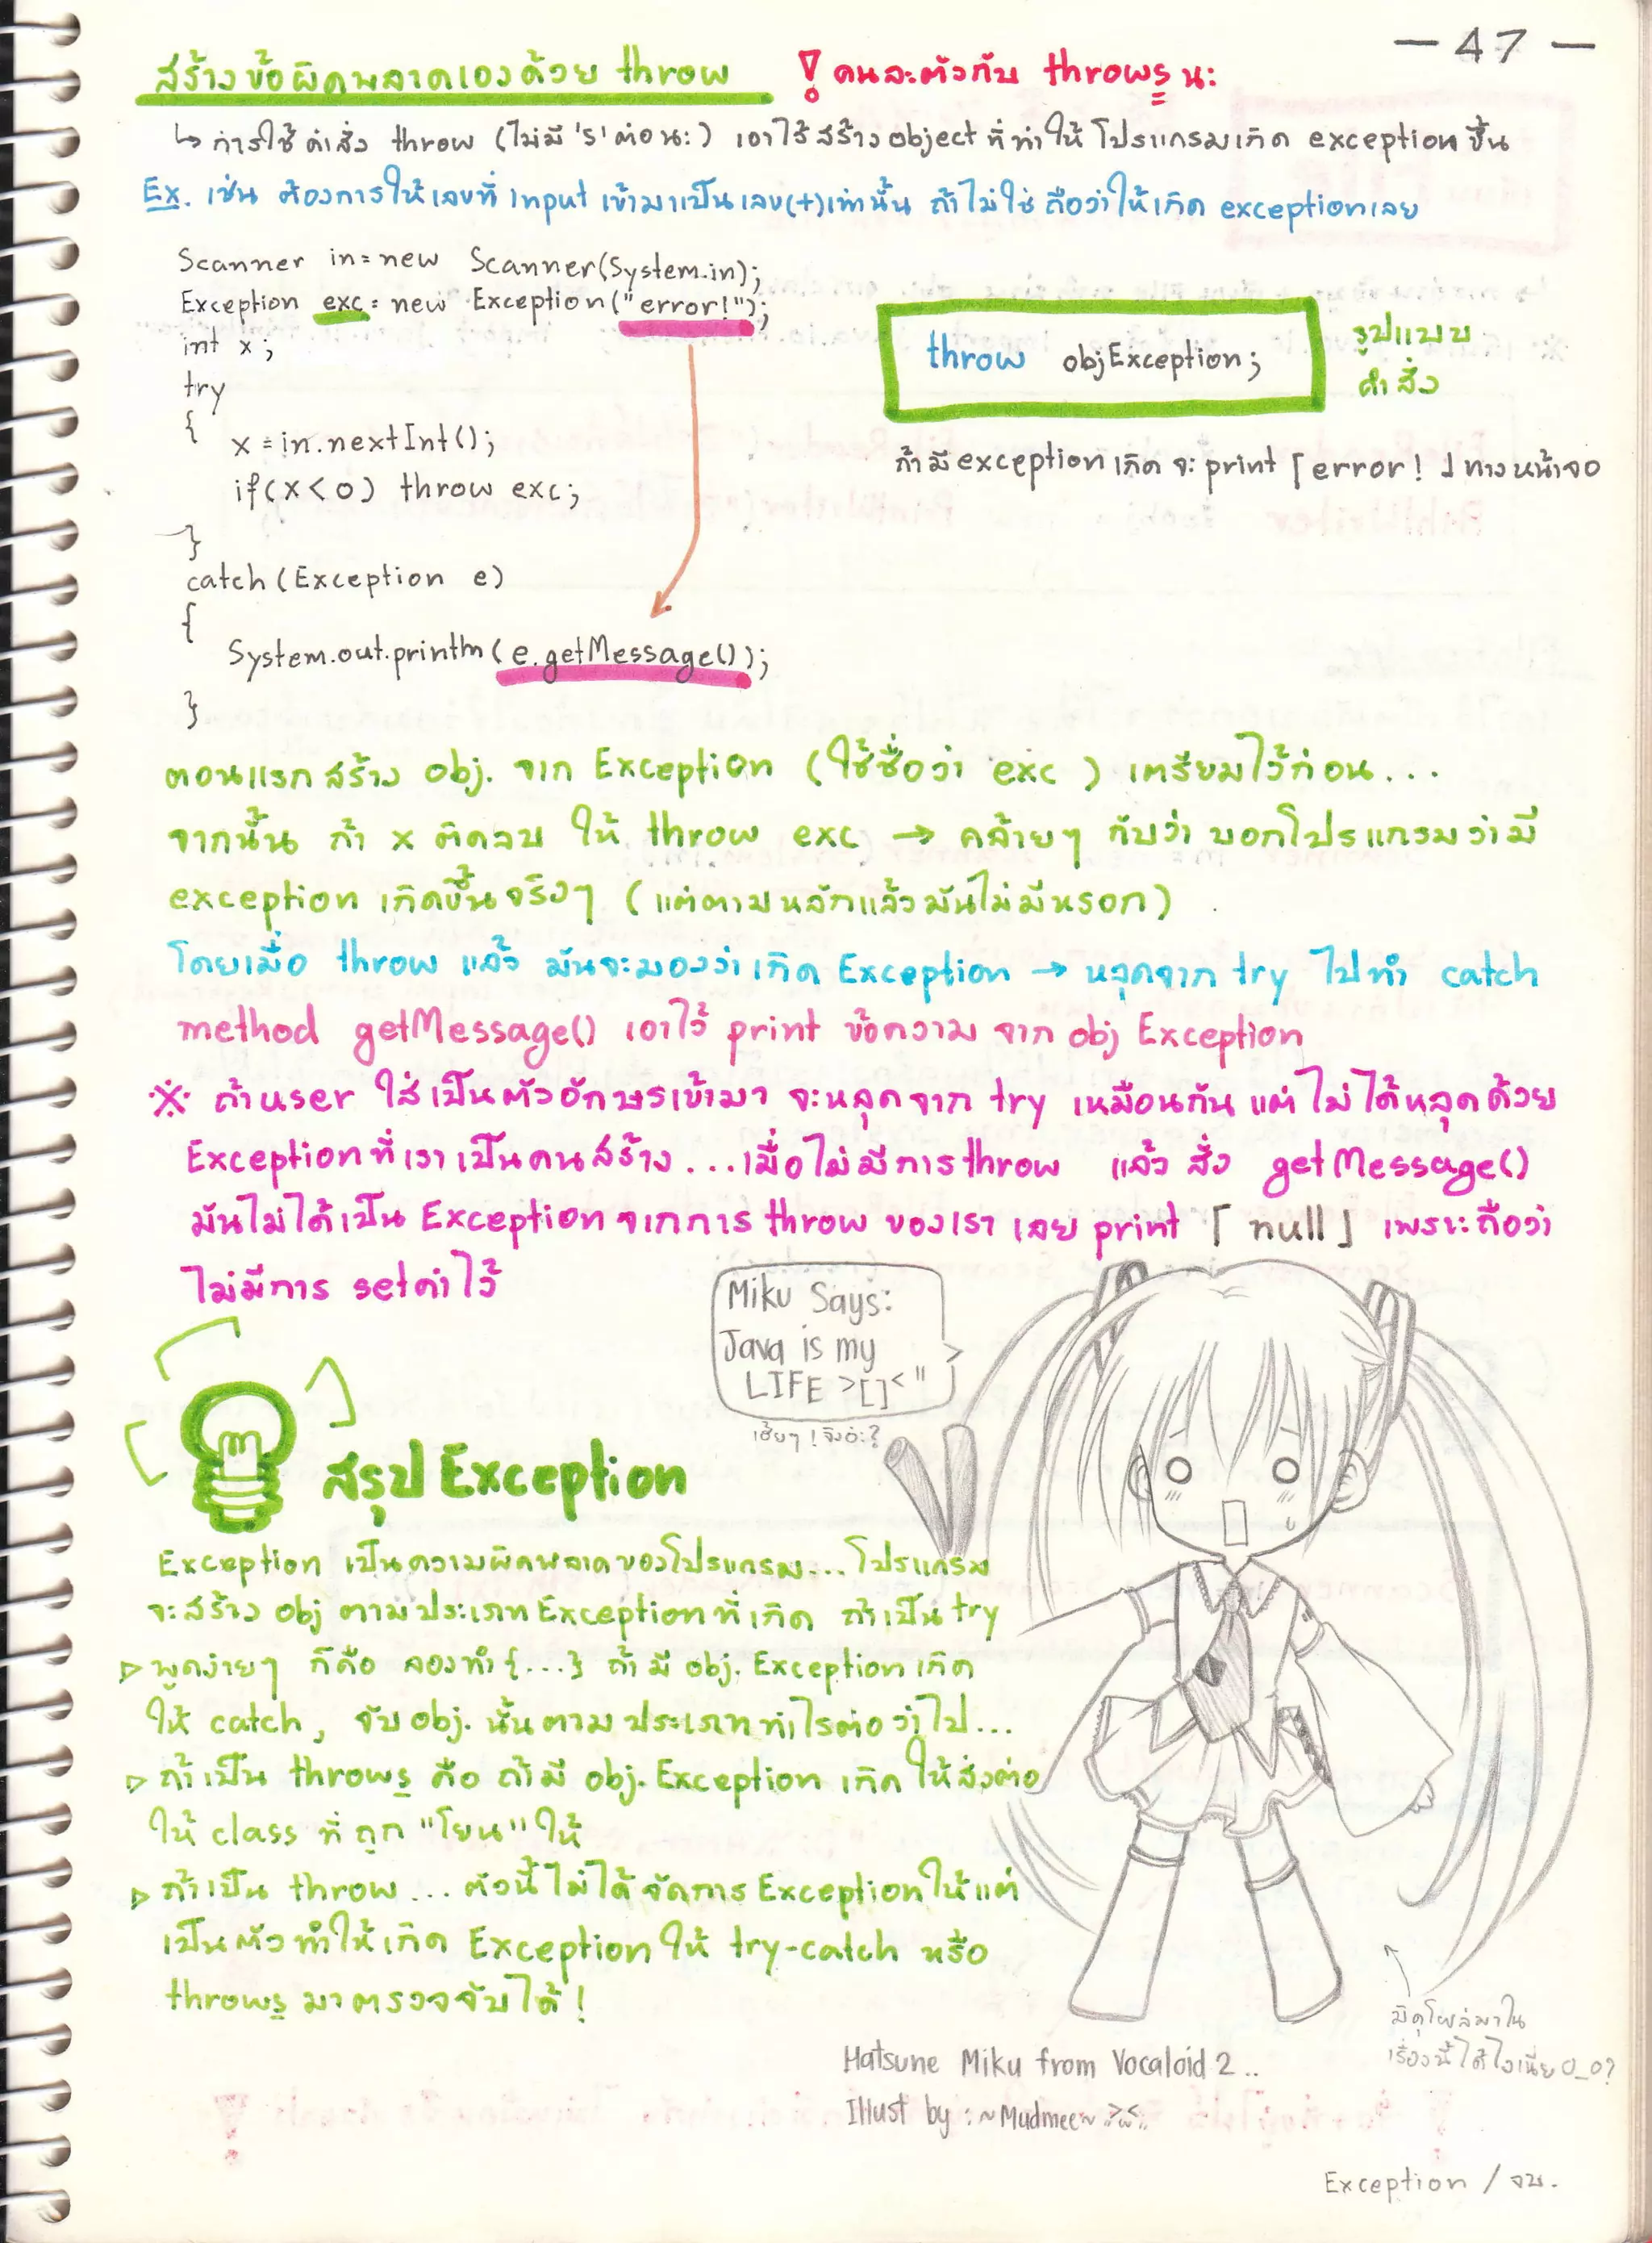 - 47 -
สร้างข้อผิดพลาดเองด้วย throw ! คนละตัวกับ throws นะ
↳ การใช้คำสั่ง throw (ไม่มี 's' ต่อนะ) เอาไว้สร้าง object ที่ทำให้โปรแกรมเกิด exception ขึ้น
Ex. เช่น ต้องการให้เลขที่ input เข้ามาเป็นเลข(+)เท่านั้น ถ้าไม่ใช่ ถือว่าให้เกิด exception เลย
Scanner in = new Scanner(System.in);
Exception exc = new Exception("error!");
int x;
try
{
x = in.nextInt();
if(x<0) throw exc;
}
catch(Exception e)
{
System.out.println(e.getMessage());
}
throw objException;
รูปแบบ
คำสั่ง
ถ้ามี exception เกิด จะ print「error!」ทางหน้าจอ
ตอนแรกสร้าง obj. จาก Exception (ใช้ชื่อว่า exc) เตรียมไว้ก่อน...
จากนั้น ถ้า x ติดลบ ให้ throw exc → คล้ายๆ กับว่า บอกโปรแกรมว่ามี
exception เกิดขึ้นจริงๆ (แต่ตามหลักแล้วมันไม่มีหรอก)
โดยเมื่อ throw แล้ว มันจะมองว่าเกิด Exception → หลุดจาก try ไปทำ catch
method getMessage() เอาไว้ print ข้อความ จาก obj Exception
※ ถ้า user ใส่เป็นตัวอักษรเข้ามา จะหลุดจาก try เหมือนกัน แต่ไม่ได้หลุดด้วย
Exception ที่เราเป็นคนสร้าง...เมื่อไม่มีการ throw แล้ว สั่ง getMessage()
มันไม่ได้เป็น Exception จากการ throw ของเรา เลย print「null」เพราะถือว่า
ไม่มีการ set ค่าไว้
Miku Says:
Java is my
LIFE >[]<"
เฮ้ยๆ! จิงอ่ะ?
สรุป Exception
Exception เป็นความผิดพลาดของโปรแกรม...โปรแกรม
จะสร้าง obj ตามประเภท Exception ที่เกิด ถ้าเป็น try
▷ พูดง่ายๆ ก็คือ ลองทำ {...} ถ้า มี obj. Exception เกิด
ให้ catch, จับ obj. นั้นตามประเภท ทำไรต่อว่าไป...
▷ ถ้าเป็น throws คือ ถ้ามี obj. Exception เกิด ให้ส่งต่อ
ให้ class ที่ ถูก "โยน" ให้
▷ ถ้าเป็น throw... ตัวนี้ไม่ได้จัดการ Exception ให้ แต่
เป็นตัวทำให้เกิด Exception ให้ try-catch หรือ
throws มาตรวจจับได้!
มิคุโผล่มาใน
เรื่องนี้ได้ไงเนี่ย O_O?
Hatsune Miku from Vocaloid 2..
Illust by : ~Mudmee~
Exception / จบ.